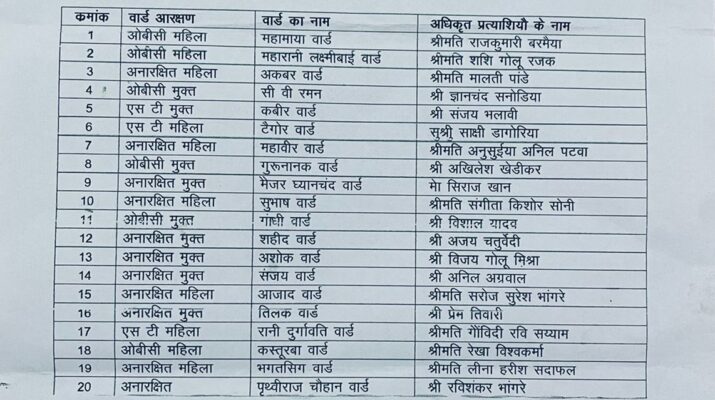 कमांक वार्ड आरक्षण वार्ड का नाम अधिकृत प्रत्याशियौ के नाम
1 ओबीसी महिला महामाया वार्ड श्रीमति राजकुमारी बरमैया
2 ओबीसी महिला महारानी लक्ष्मीबाई वार्ड श्रीमति शशि गोलू रजक
3 अनारक्षित महिला अकबर वार्ड श्रीमति मालती पांडे
4 ओबीसी मुक्त सी वी रमन श्री ज्ञानचंद सनोडिया
5 एस टी मुक्त कबीर वार्ड श्री संजय भलावी
6 एस टी महिला टैगोर वार्ड सुश्री साक्षी डागोरिया
7 अनारक्षित महिला महावीर वार्ड श्रीमति अनुसुईया अनिल पटवा
8 ओबीसी मुक्त गुरूनानक वार्ड श्री अखिलेश खेडीकर
9 अनारक्षित मुक्त मैजर घ्यानचंद वार्ड मेा सिराज खान
10 अनारक्षित महिला सुभाष वार्ड श्रीमति संगीता किशोर सोनी
11 ओबीसी मुक्त गांधी वार्ड श्री विशाल यादव
12 अनारक्षित मुक्त शहीद वार्ड श्री अजय चतुर्वेदी
13 अनारक्षित मुक्त अशोक वार्ड श्री विजय गोलू मिश्रा
14 अनारक्षित मुक्त संजय वार्ड श्री अनिल अग्रवाल
15 अनारक्षित महिला आजाद वार्ड श्रीमति सरोज सुरेश भांगरे
16 अनारक्षित मुक्त तिलक वार्ड श्री प्रेम तिवारी
17 एस टी महिला रानी दुर्गावति वार्ड श्रीमति गोंविदी रवि सय्याम
18 ओबीसी महिला कस्तूरबा वार्ड श्रीमति रेखा विश्वकर्मा
19 अनारक्षित महिला भगतसिग वार्ड श्रीमति लीना हरीश सदाफल
20 अनारक्षित पृथ्वीराज चौहान वार्ड श्री रविशंकर भांगरे